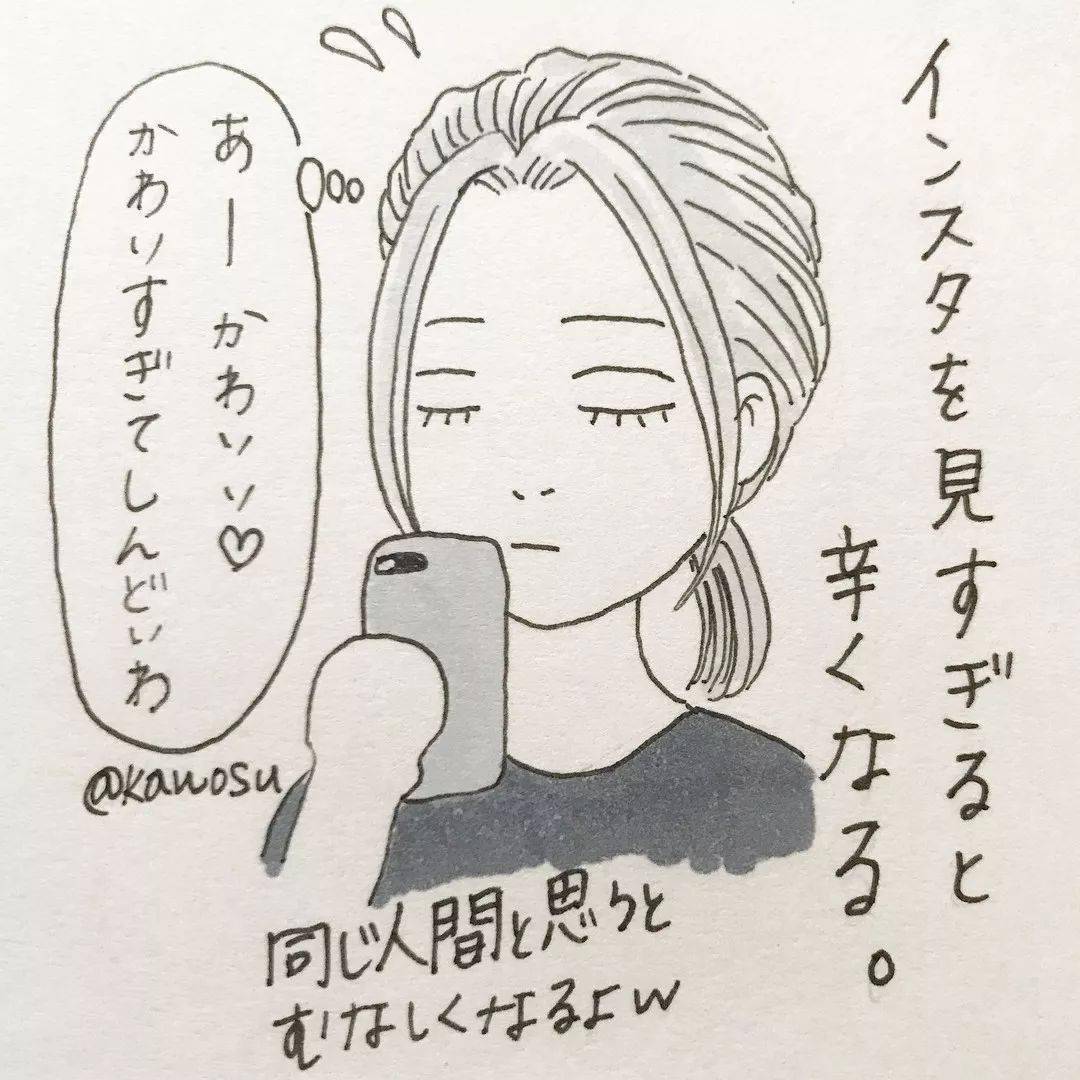 インスタを見すぎると
辛くなる。
あーかわいい♡
かわいすぎてしんどいわ
@kawosu
同じ人間と思うと
むなしくなるよw